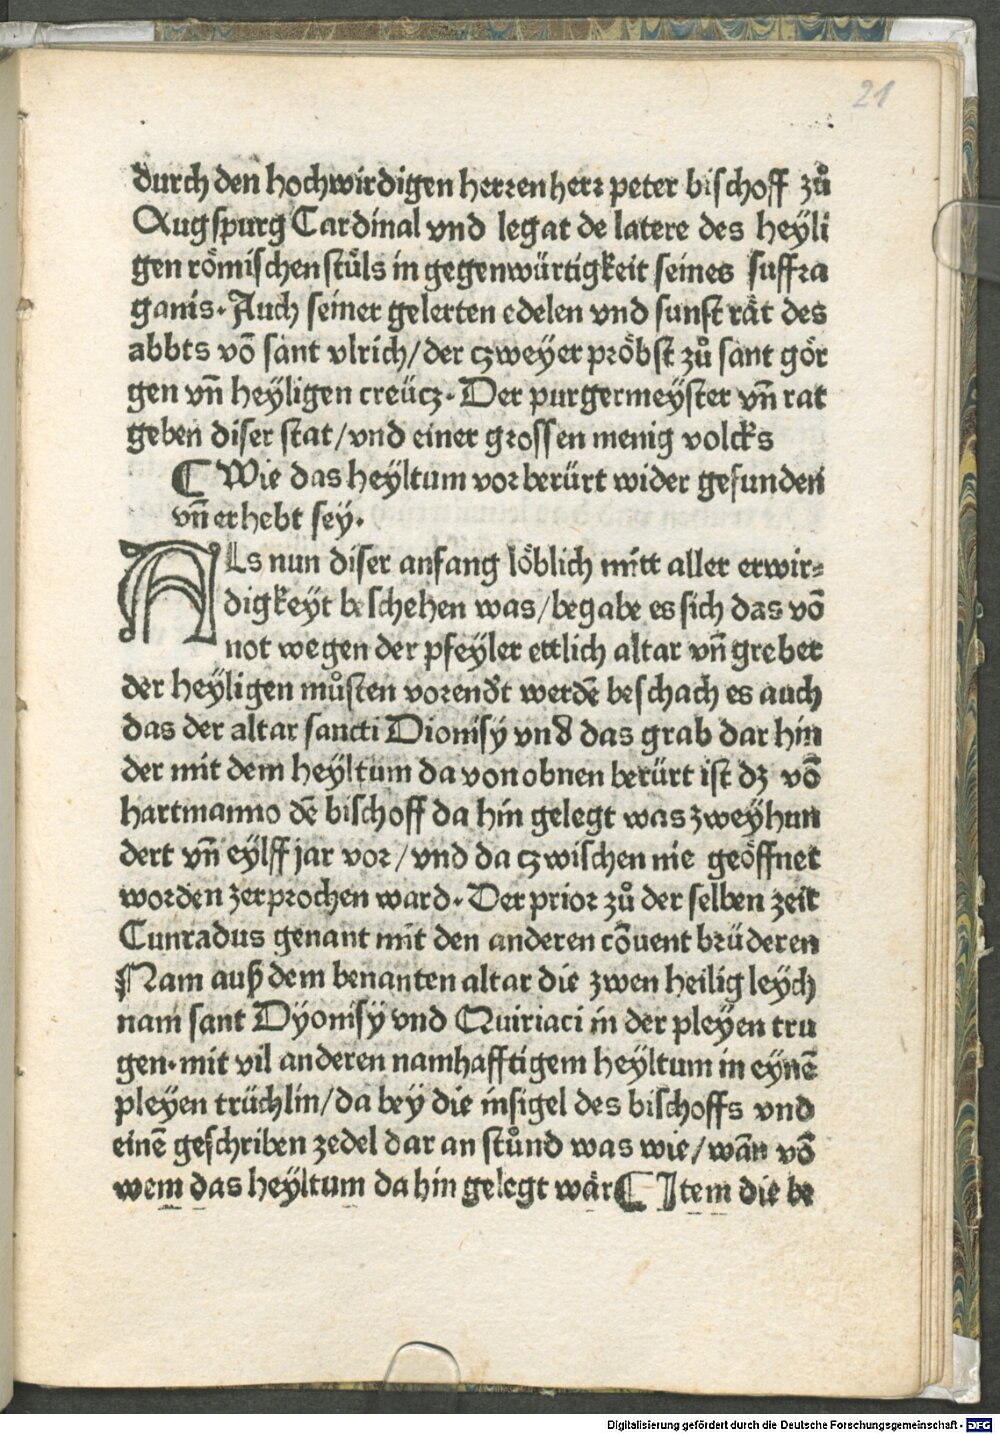 21
durch den hochwirdigen herren herr peter bischoff zů
Augspurg Cardinal vnd legat de latere des heyli
gen römischen stůls in gegenwürtigkeit seines suffra
ganis. Auch seiner gelerten edelen vnd sunst rät des
abbts vō sant vlrich/der czweyer pröbst zů sant gör
gen vn̄ heyligen creücz. Der purgermeyster vn̄ rat
geben diser stat/vnd einer grossen menig volcks
¶ Wie das heyltum vor berürt wider gefunden
vn̄ erhebt sey.
ALs nun diser anfang löblich mitt aller erwir⸗
digkeyt beschehen was/begabe es sich das vō
not wegen der pfeyler ettlich altar vn̄ greber
der heyligen můsten vorendt werdē beschach es auch
das der altar sancti Dionisy vnd das grab dar hin
der mit dem heyltum da von obnen berürt ist dz vō
hartmanno dē bischoff da hin gelegt was zweyhun
dert vn̄ eylff jar vor/vnd da czwischen nie geöffnet
worden zerprochen ward. Der prior zů der selben zeit
Cunradus genant mit den anderen cōuent brüderen
Nam auß dem benanten altar die zwen heilig leych
nam sant Dyonisy vnd Quiriaci in der pleyen tru
gen. mit vil anderen namhafftigem heyltum in eynē
pleyen trüchlin/da bey die insigel des bischoffs vnd
einē geschriben zedel dar an stůnd was wie/wān vō
wem das heyltum da hin gelegt wär ¶ Item die be
Digitalisierung gefördert durch die Deutsche Forschungsgemeinschaft - DFG